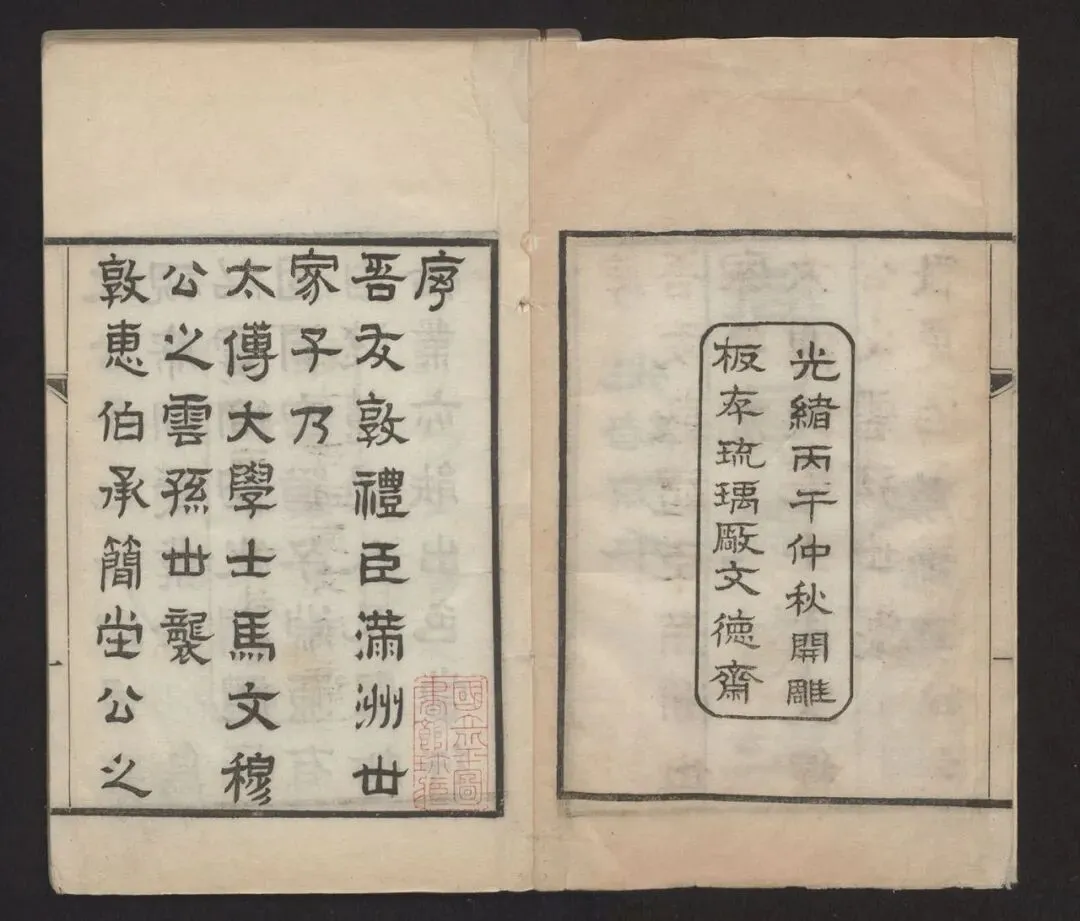 光緒丙午仲秋開雕
板存琉璃厰文德齋
序
吾友敦禮臣滿洲世
家子乃
太傅大學士馬文穆
公之雲孫世襲
敦惠伯承簡堂公之
國立圖
書館珍藏